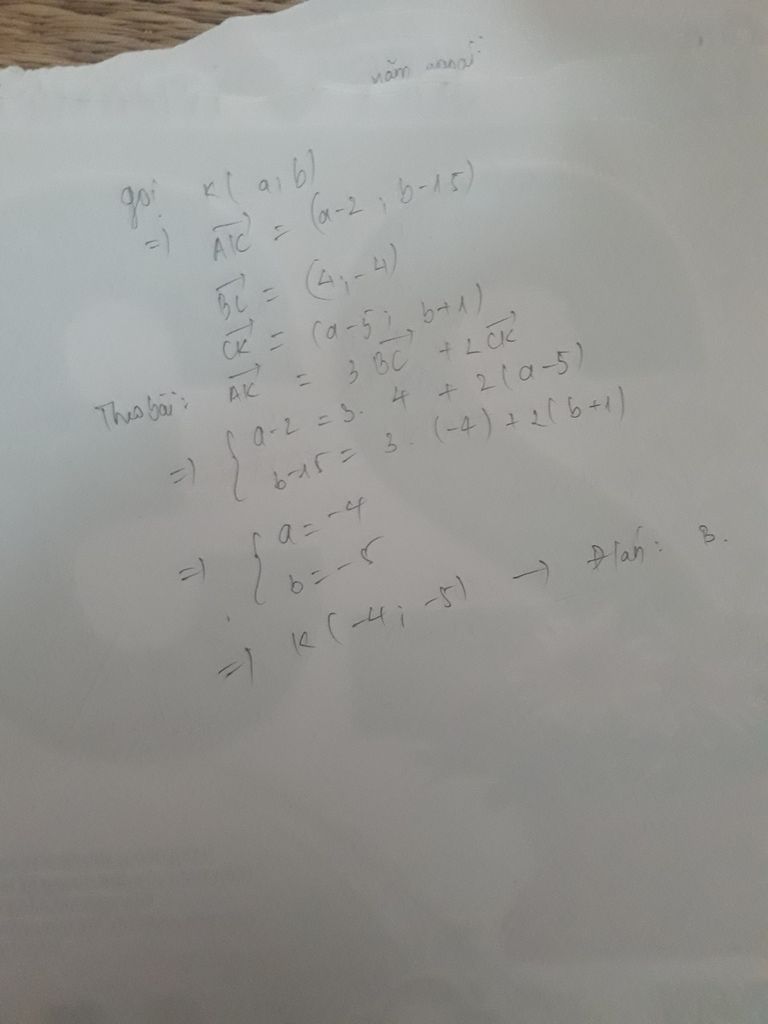 gọi K( a; b)
=) AK = (a-2; b-15)
BC = (4;-4)
CK = (a-5; b+1)
Theo bài: AK = 3 BC + 2 CK
=) { a-2 = 3. 4 + 2(a-5)
b-15 = 3. (-4) + 2(b+1)
=) { a = -4
b = -5
=) K (-4; -5) → Đ/án: B.